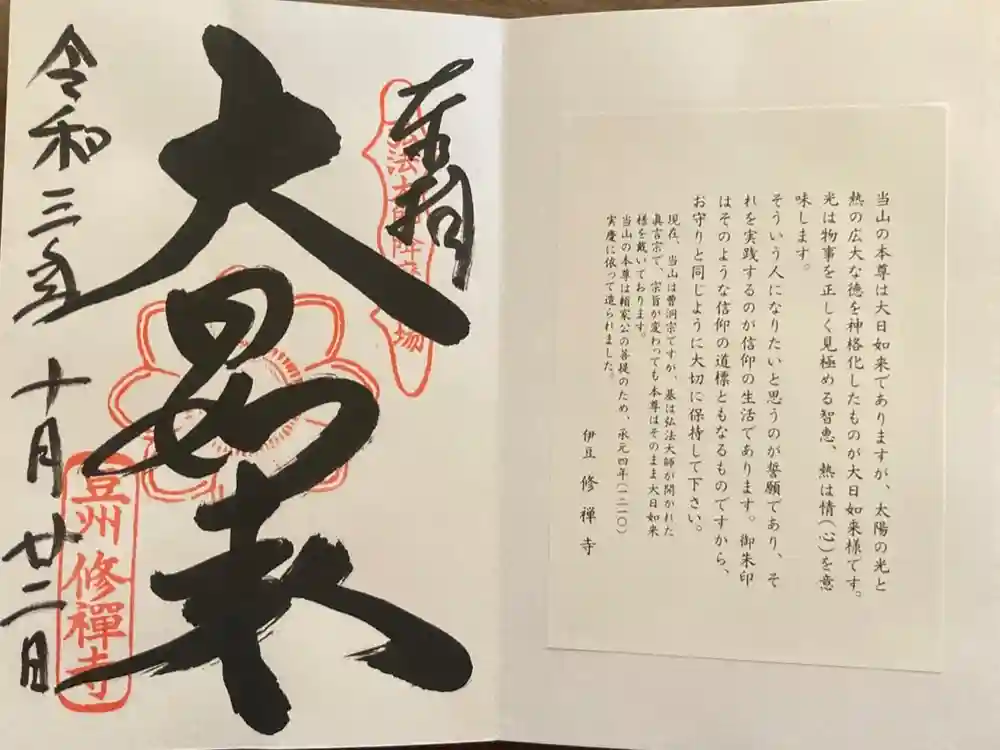 当山の本尊は大日如来でありますが、太陽の光と
熱の広大な徳を神格化したものが大日如来様です。
光は物事を正しく見極める智恵、熱は情(心)を意
味します。
そういう人になりたいと思うのが誓願であり、そ
れを実践するのが信仰の生活であります。御朱印
はそのような信仰の道標ともなるものですから、
お守りと同じように大切に保持して下さい。
現在、当山は曹洞宗ですが、基は弘法大師が開かれた
真言宗で、宗旨が変わっても本尊はそのまま大日如来
様を戴いております。
当山の本尊は頼家公の菩提のため、承元四年(一二一〇)
実慶に依って造られました。
伊豆 修禅寺
奉拝
大日如来
豆州修禪寺
令和三年 十月廿二日